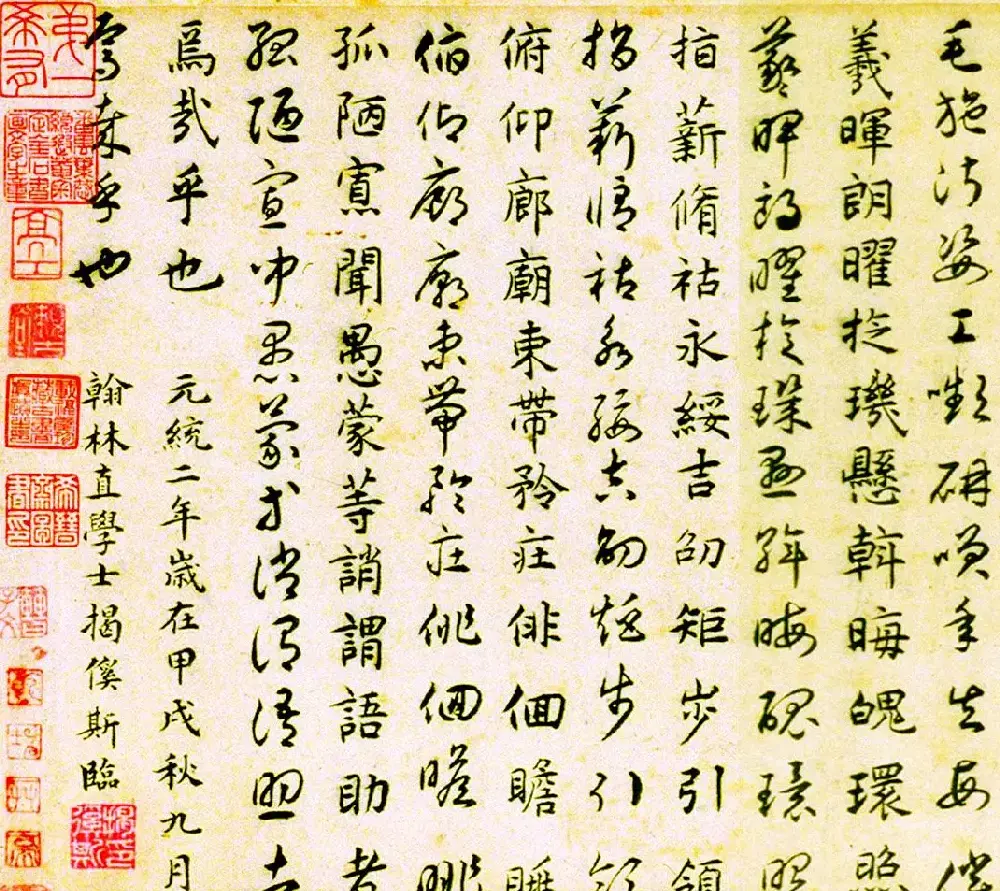 毛施淑姿工嚬研咲年矢每催
羲暉朗曜旋璣懸斡晦魄環照
羲暉朗曜旋璣懸斡晦魄環照
指薪脩祜永綏吉劭矩步引領
指薪脩祜永綏吉劭矩步引領
俯仰廊廟束帶矜莊徘徊瞻眺
俯仰廊廟束帶矜莊徘徊瞻眺
孤陋寡聞愚蒙等誚謂語助者
孤陋寡聞愚蒙等誚謂語助者
焉哉乎也
元統二年歲在甲戌秋九月
焉哉乎也
翰林直學士揭傒斯臨